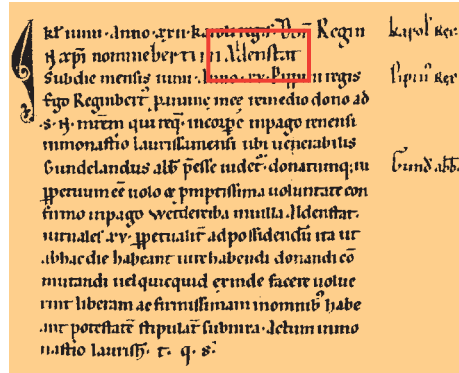 kł iunii · Anno · xxii · karoli regis · Regin
N xp̄i nomine bertini Aldenstat
Subdie mensis iunii · Anno · xv · Pippini regis
Ego Reginbert' p anime mee remedio dono ad
· s · N · m̄rem qui req̄ · incorpē inpago renensi
inmonastio laurissamensi ubi uenerabilis
Gundelandus abb p̄esse uidet · donatumq; in
ppetuum eē uolo & pmptissima uoluntate con
firmo inpago Wettereiba inuilla Aldenstat ·
iurnales · xv · ppetualit̄ adpossidendū ita ut
abhac die habeant iure habendi donandi cō
mutandi uelquicquid exinde facere uolue
rint liberam ac firmissimam inomnib' habe
ant potestatē stipulat̄ subnixa · Actum inmo
nastio laurish̄ · t · q · s ·
karol' Rex
Pipin' Rex
Gund' abb